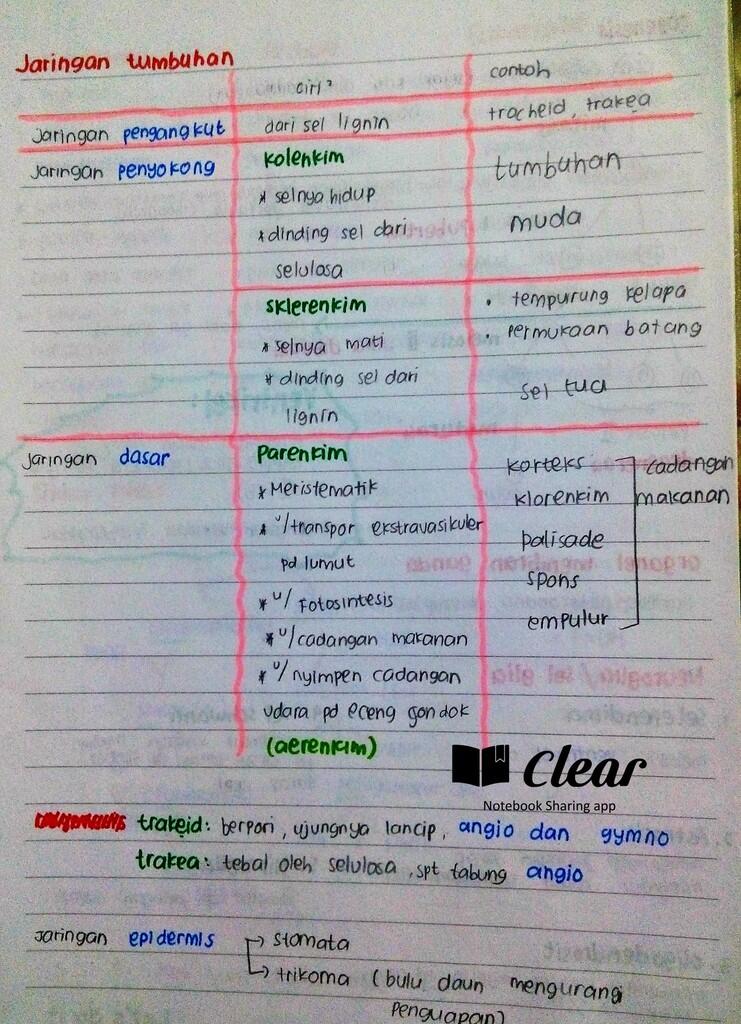 Jaringan tumbuhan
ciri²
contoh
Jaringan pengangkut
dari sel lignin
tracheid, trakea
Jaringan penyokong
kolenkim
* selnya hidup
* dinding sel dari
selulosa
tumbuhan
muda
sklerenkim
* selnya mati
* dinding sel dari
lignin
• tempurung kelapa
• permukaan batang
sel tua
Jaringan dasar
parenkim
* Meristematik
* u/transpor ekstravasikuler
pd lumut
* u/ Fotosintesis
* u/cadangan makanan
* u/ nyimpen cadangan
udara pd eceng gondok
(aerenkim)
korteks
klorenkim
palisade
spons
empulur
cadangan
makanan
Clear
Notebook Sharing app
trakeid: berpori, ujungnya lancip, angio dan gymno
trakea: tebal oleh selulosa, spt tabung angio
Jaringan epidermis → stomata
→ trikoma (bulu daun mengurangi
penguapan)